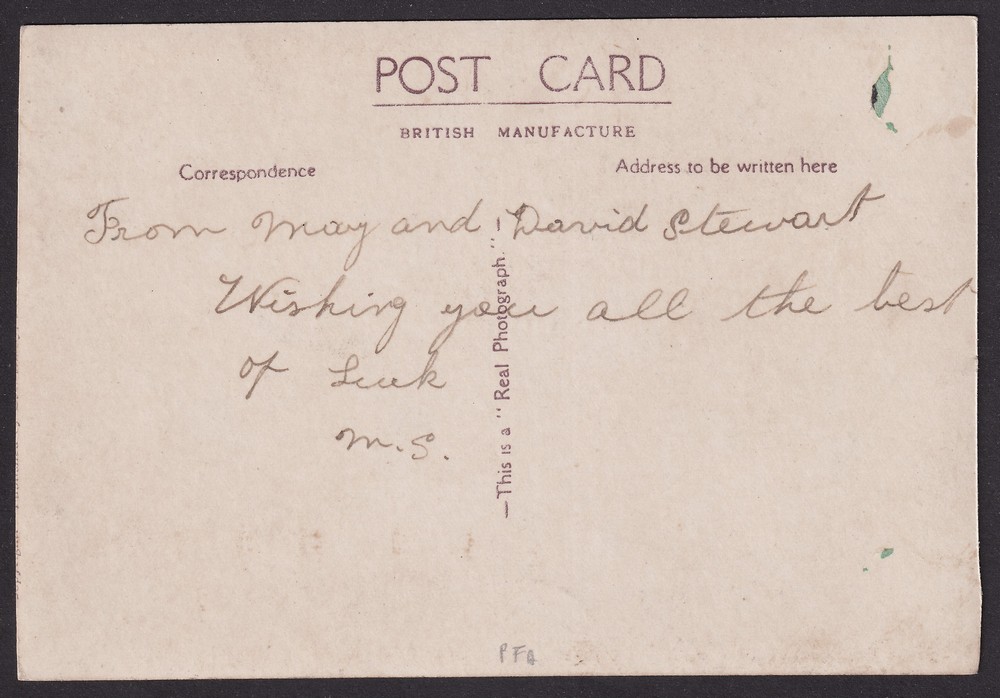 POST CARD
BRITISH MANUFACTURE
Correspondence
Address to be written here
From May and David Stewart
Wishing you all the best
of Luck
M.S.
—This is a "Real Photograph."
PFA